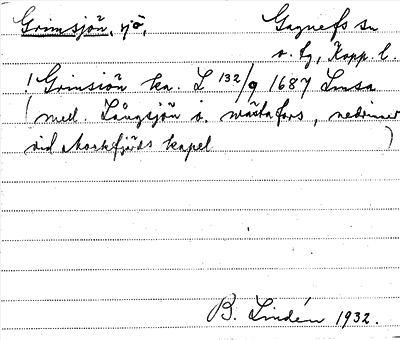 Grimsjön, sjö, Gagnefs sn
o. hg, Kopp. l.
! Grimsiön ka. L 132/9 1687 Lmsa
(med. Långsjön o. wästafors,
vid Mockfjärds kapel )
B. Lindén 1932.